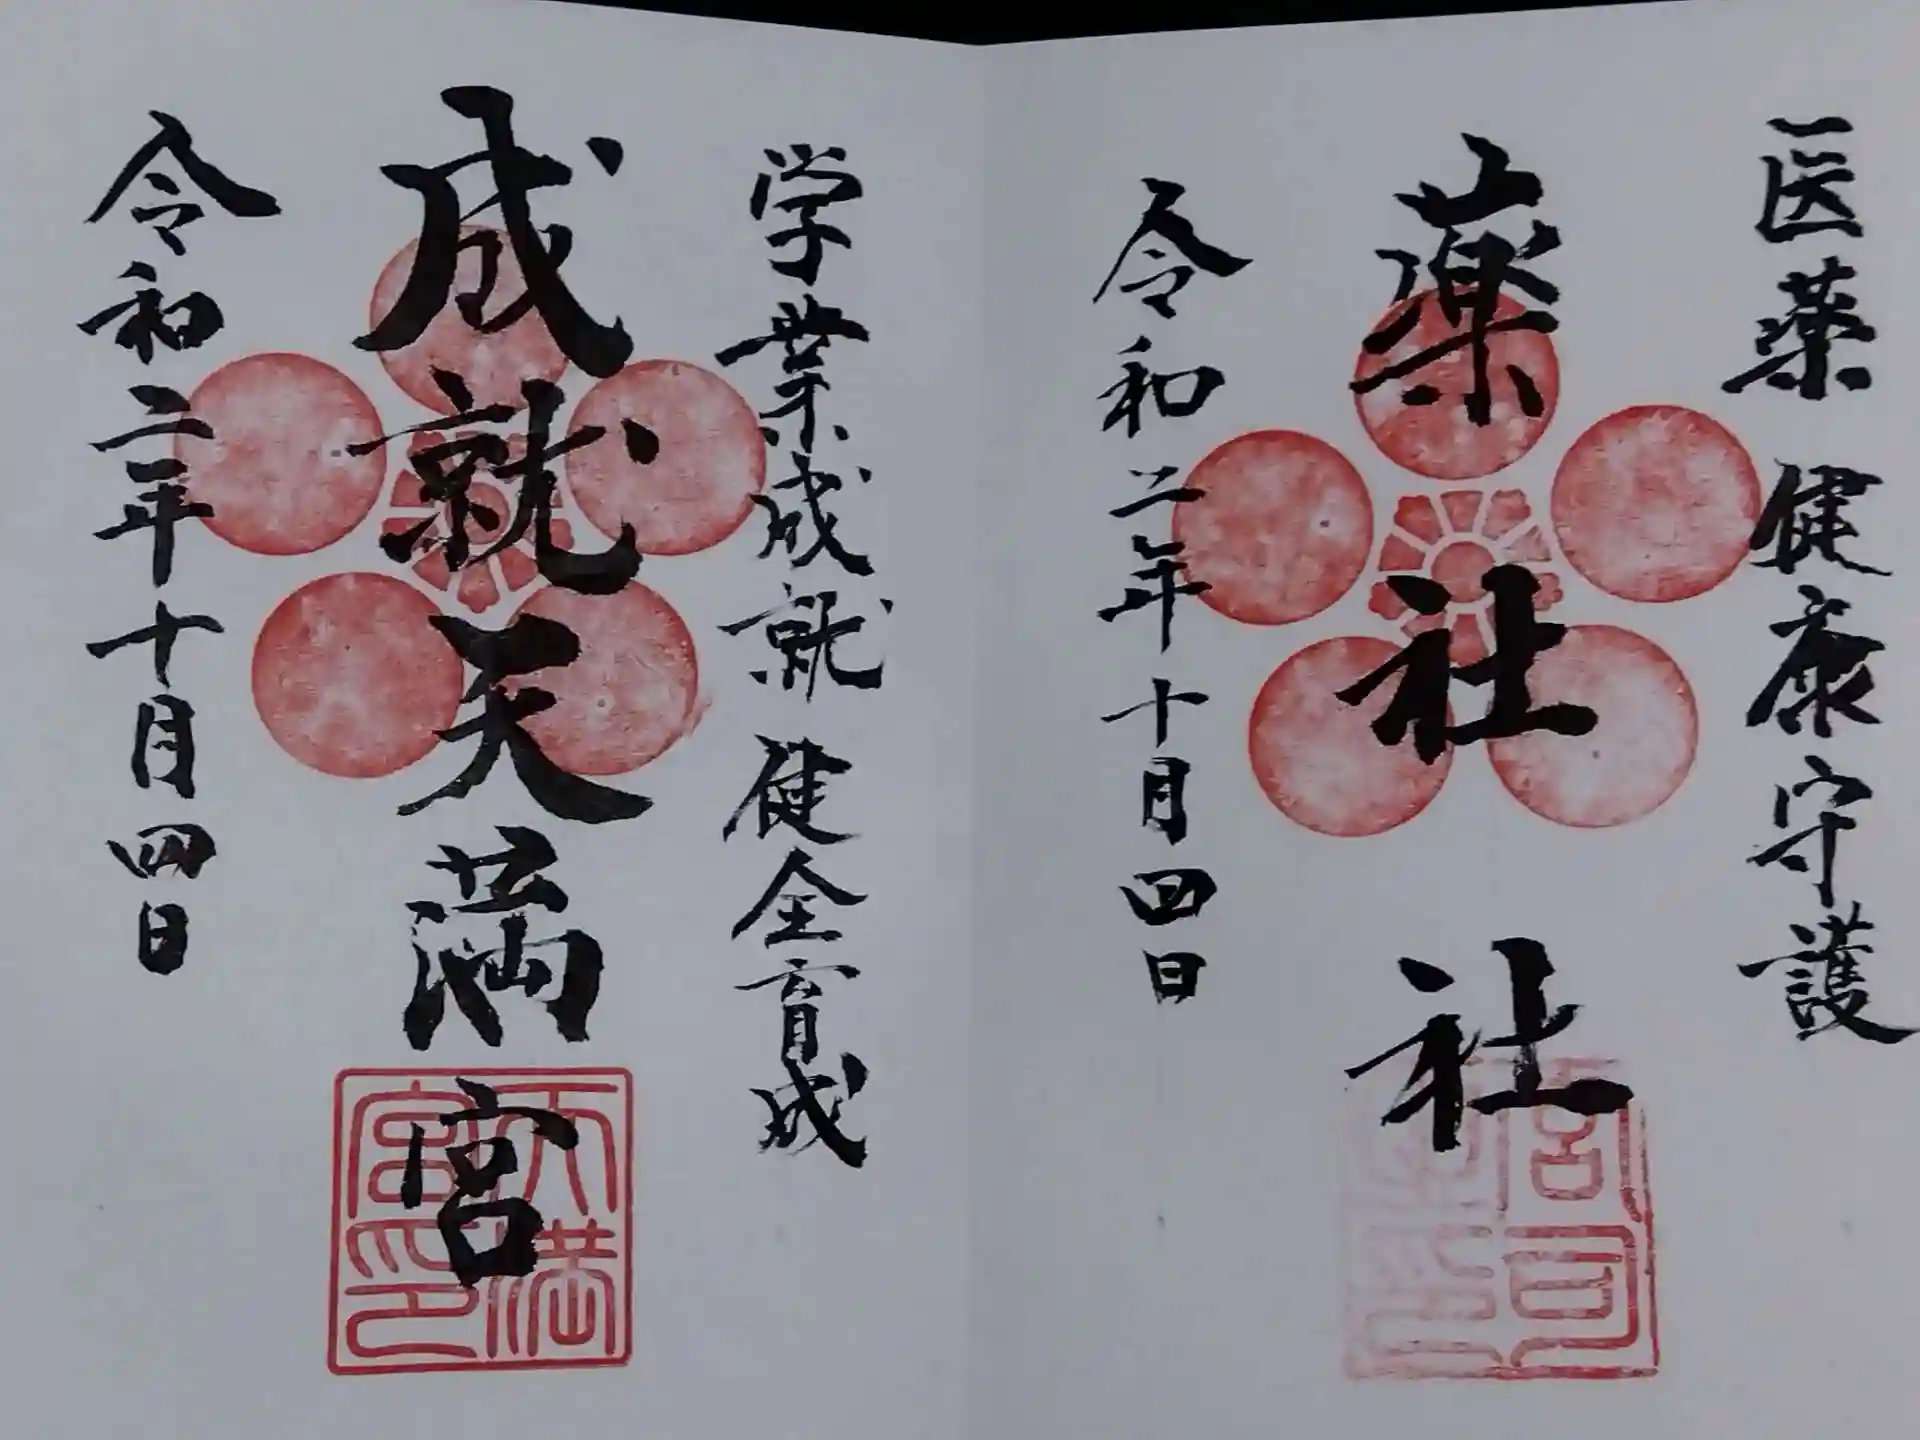 医薬 健康守護
薬社社
令和二年十月四日
宮司
印
学業成就 健全育成
成就天満宮
令和二年十月四日
天満
宮印